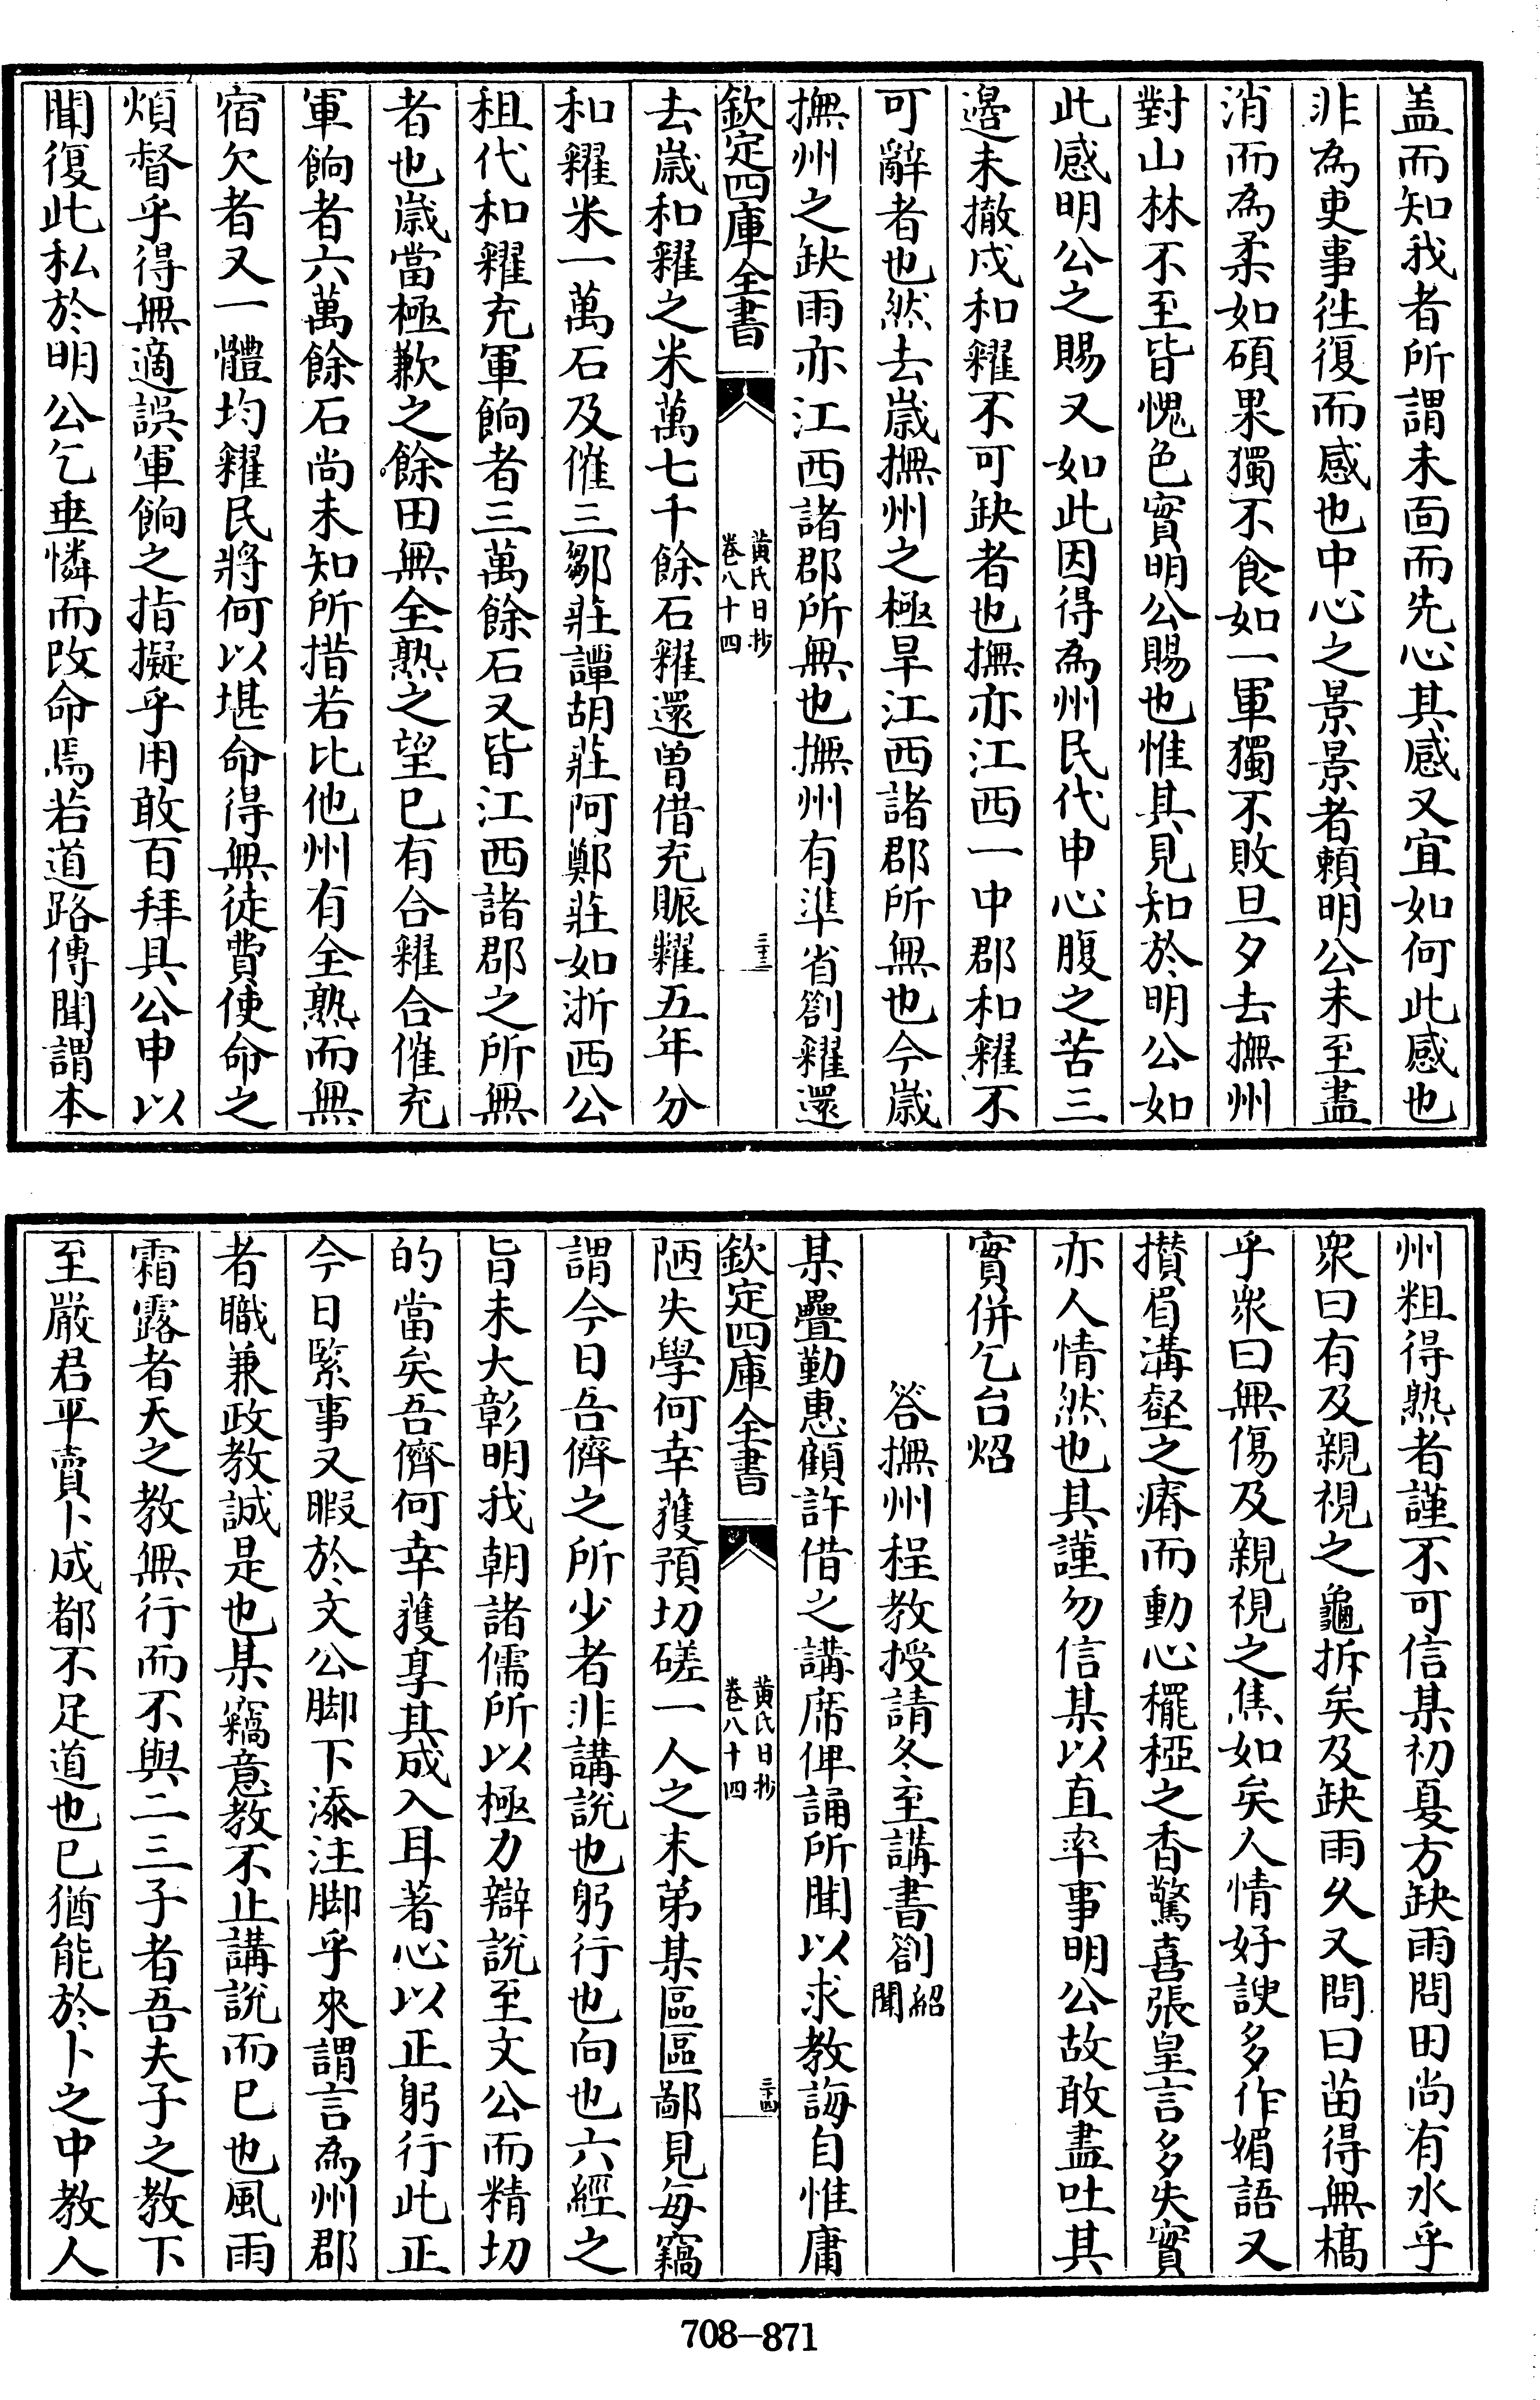 盖而知我者所謂未面而先心其感又宜如何此感也
非為吏事徃復而感也中心之景景者頼明公未至盡
消而為柔如碩果獨不食如一軍獨不敗旦夕去撫州
對山林不至皆愧色實明公賜也惟其見知於明公如
此感明公之賜又如此因得為州民代申心腹之苦三
邉未撤戍和糴不可缺者也撫亦江西一中郡和糴不
可辭者也然去嵗撫州之極旱江西諸郡所無也今嵗
撫州之缺雨亦江西諸郡所無也撫州有準省劄糴還
欽定四庫全書
黄氏日抄
卷八十四
三十三
去嵗和糴之米萬七千餘石糴還曽借充賑糶五年分
和糴米一萬石及催三鄒莊譚胡莊阿鄭莊如浙西公
租代和糴充軍餉者三萬餘石又皆江西諸郡之所無
者也嵗當極歉之餘田無全熟之望已有合糴合催充
軍餉者六萬餘石尚未知所措若比他州有全熟而無
宿欠者又一體均糴民將何以堪命得無徒費使命之
煩督乎得無適誤軍餉之指擬乎用敢百拜具公申以
聞復此私於明公乞垂憐而改命焉若道路傳聞謂本
州粗得熟者謹不可信某初夏方缺雨問田尚有水乎
衆曰有及親視之龜拆矣及缺雨乆又問曰苗得無槁
乎衆曰無傷及親視之焦如矣人情好諛多作媚語又
攅眉溝壑之瘠而動心䆉稏之香驚喜張皇言多失實
亦人情然也其謹勿信某以直率事明公故敢盡吐其
實併乞台炤
答撫州程教授請冬至講書劄紹聞
某疊勤惠顧許借之講席俾誦所聞以求教誨自惟庸
欽定四庫全書
黄氏日抄
卷八十四
三十四
陋失學何幸獲預切磋一人之末第某區區鄙見每竊
謂今日吾儕之所少者非講說也躬行也向也六經之
旨未大彰明我朝諸儒所以極力辯說至文公而精切
的當矣吾儕何幸獲享其成入耳著心以正躬行此正
今日緊事又暇於文公脚下添注脚乎來謂言為州郡
者職兼政教誠是也某竊意教不止講說而已也風雨
霜露者天之教無行而不與二三子者吾夫子之教下
至嚴君平賣卜成都不足道也已猶能於卜之中教人
708—871